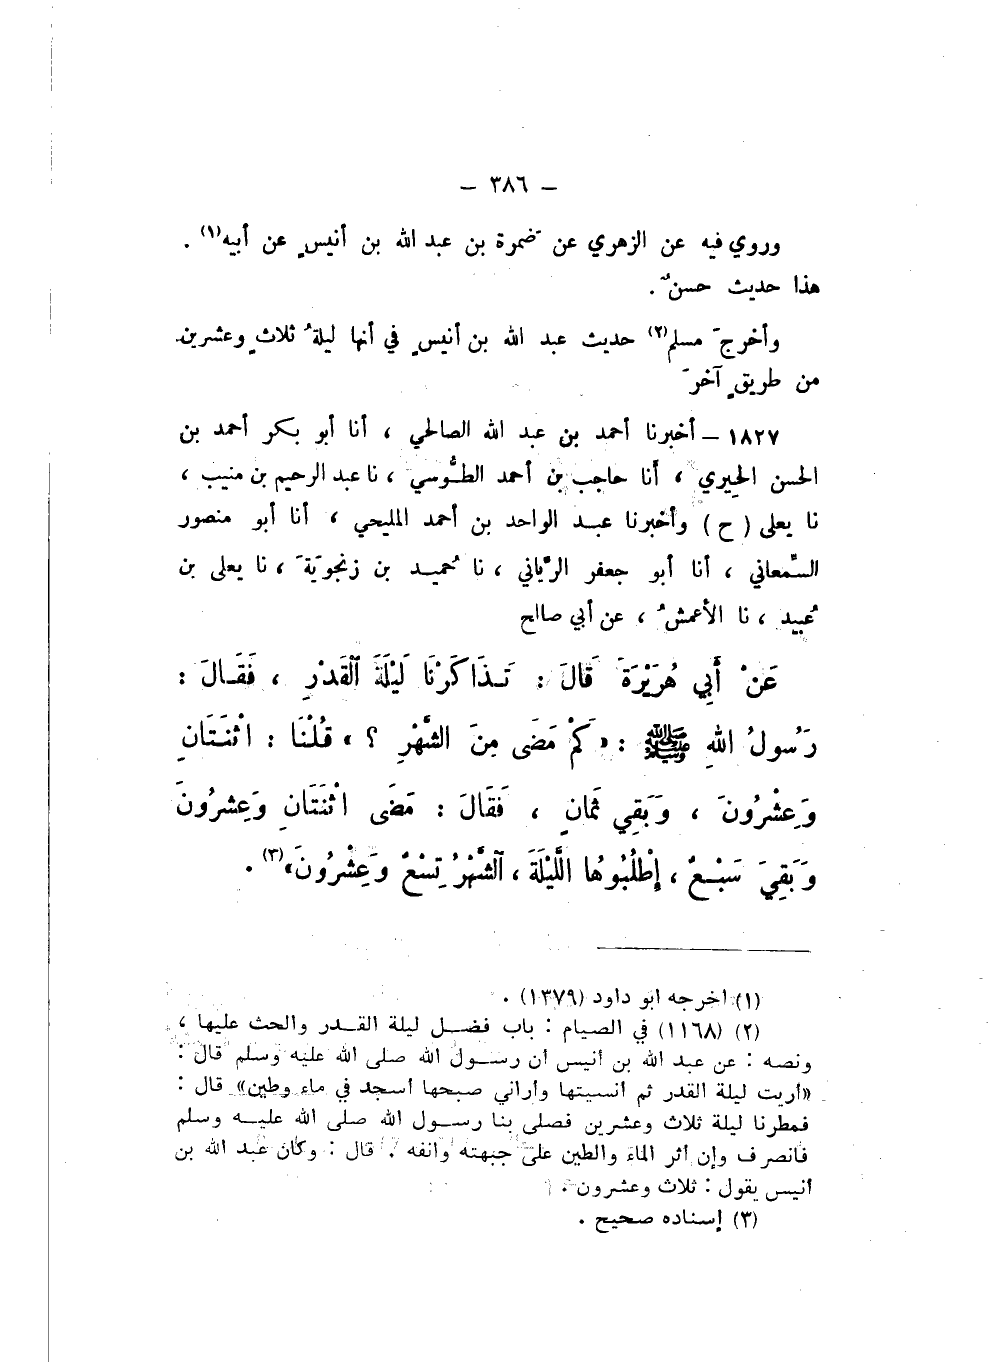 – ٣٨٦ –
وروي فيه عن الزهري عن ضَمرة بن عبد الله بن أنيسٍ عن أبيه(١) .
هذا حديث حسنٌ .
وأخرجَ مسلم(٢) حديث عبد الله بن أنيسٍ في أنها ليلةُ ثلاثٍ وعشرين
من طريقٍ آخرَ
١٨٢٧ – أخبرنا أحمد بن عبد الله الصالحي ، أنا أبو بكر أحمد بن
الحسن الحِيري ، أنا حاجب بن أحمد الطُّوسي ، نا عبد الرحيم بن منيب ،
نا يعلى ( ح ) وأخبرنا عبد الواحد بن أحمد المليحي ، أنا أبو منصور
السَّمعاني ، أنا أبو جعفر الرَّياني ، نا حُميد بن زنجويَةَ ، نا يعلى بن
عُبيد ، نا الأعمشُ ، عن أبي صالح
عَنْ أَبِي هُرَيْرَةَ قَالَ : تَذَاكَرْنَا لَيْلَةَ الْقَدْرِ ، فَقَالَ :
رَسُولُ اللهِ ﷺ : « كَمْ مَضَى مِنَ الشَّهْرِ ؟ » قُلْنَا : اثْنَتَانِ
وَعِشْرُونَ ، وَبَقِي ثَمَانٍ ، فَقَالَ : مَضَى اثْنَتَانِ وَعِشرُونَ
وَبَقِيَ سَبْعٌ ، إِطْلُبُوُهَا اللَّيْلَةَ ، الشَّهْرُ تِسْعٌ وَعِشْرُونَ»(٣) .
(١) أخرجه ابو داود (١٣٧٩) .
(٢) (١١٦٨) في الصيام : باب فضل ليلة القدر والحث عليها ،
ونصه : عن عبد الله بن أنيس أن رسول الله صلى الله عليه وسلم قال :
«أريت ليلة القدر ثم أنسيتها وأراني صبحها أسجد في ماء وطين» قال :
فمطرنا ليلة ثلاث وعشرين فصلى بنا رسول الله صلى الله عليه وسلم
فانصرف وإن أثر الماء والطين على جبهته وأنفه . قال : وكان عبد الله بن
أنيس يقول : ثلاث وعشرون .
(٣) إسناده صحيح .